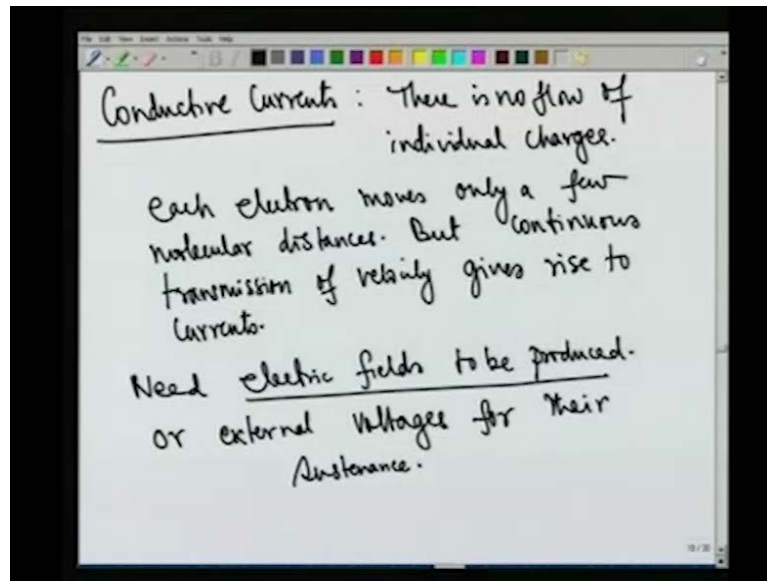 Conductive Currents : There is no flow of
individual charges.
each electron moves only a few
molecular distances. But continuous
transmission of velocity gives rise to
Currents.
Need electric fields to be produced.
or external voltages for their
Sustenance.